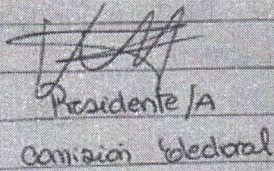 Presidente/A
comisión Electoral